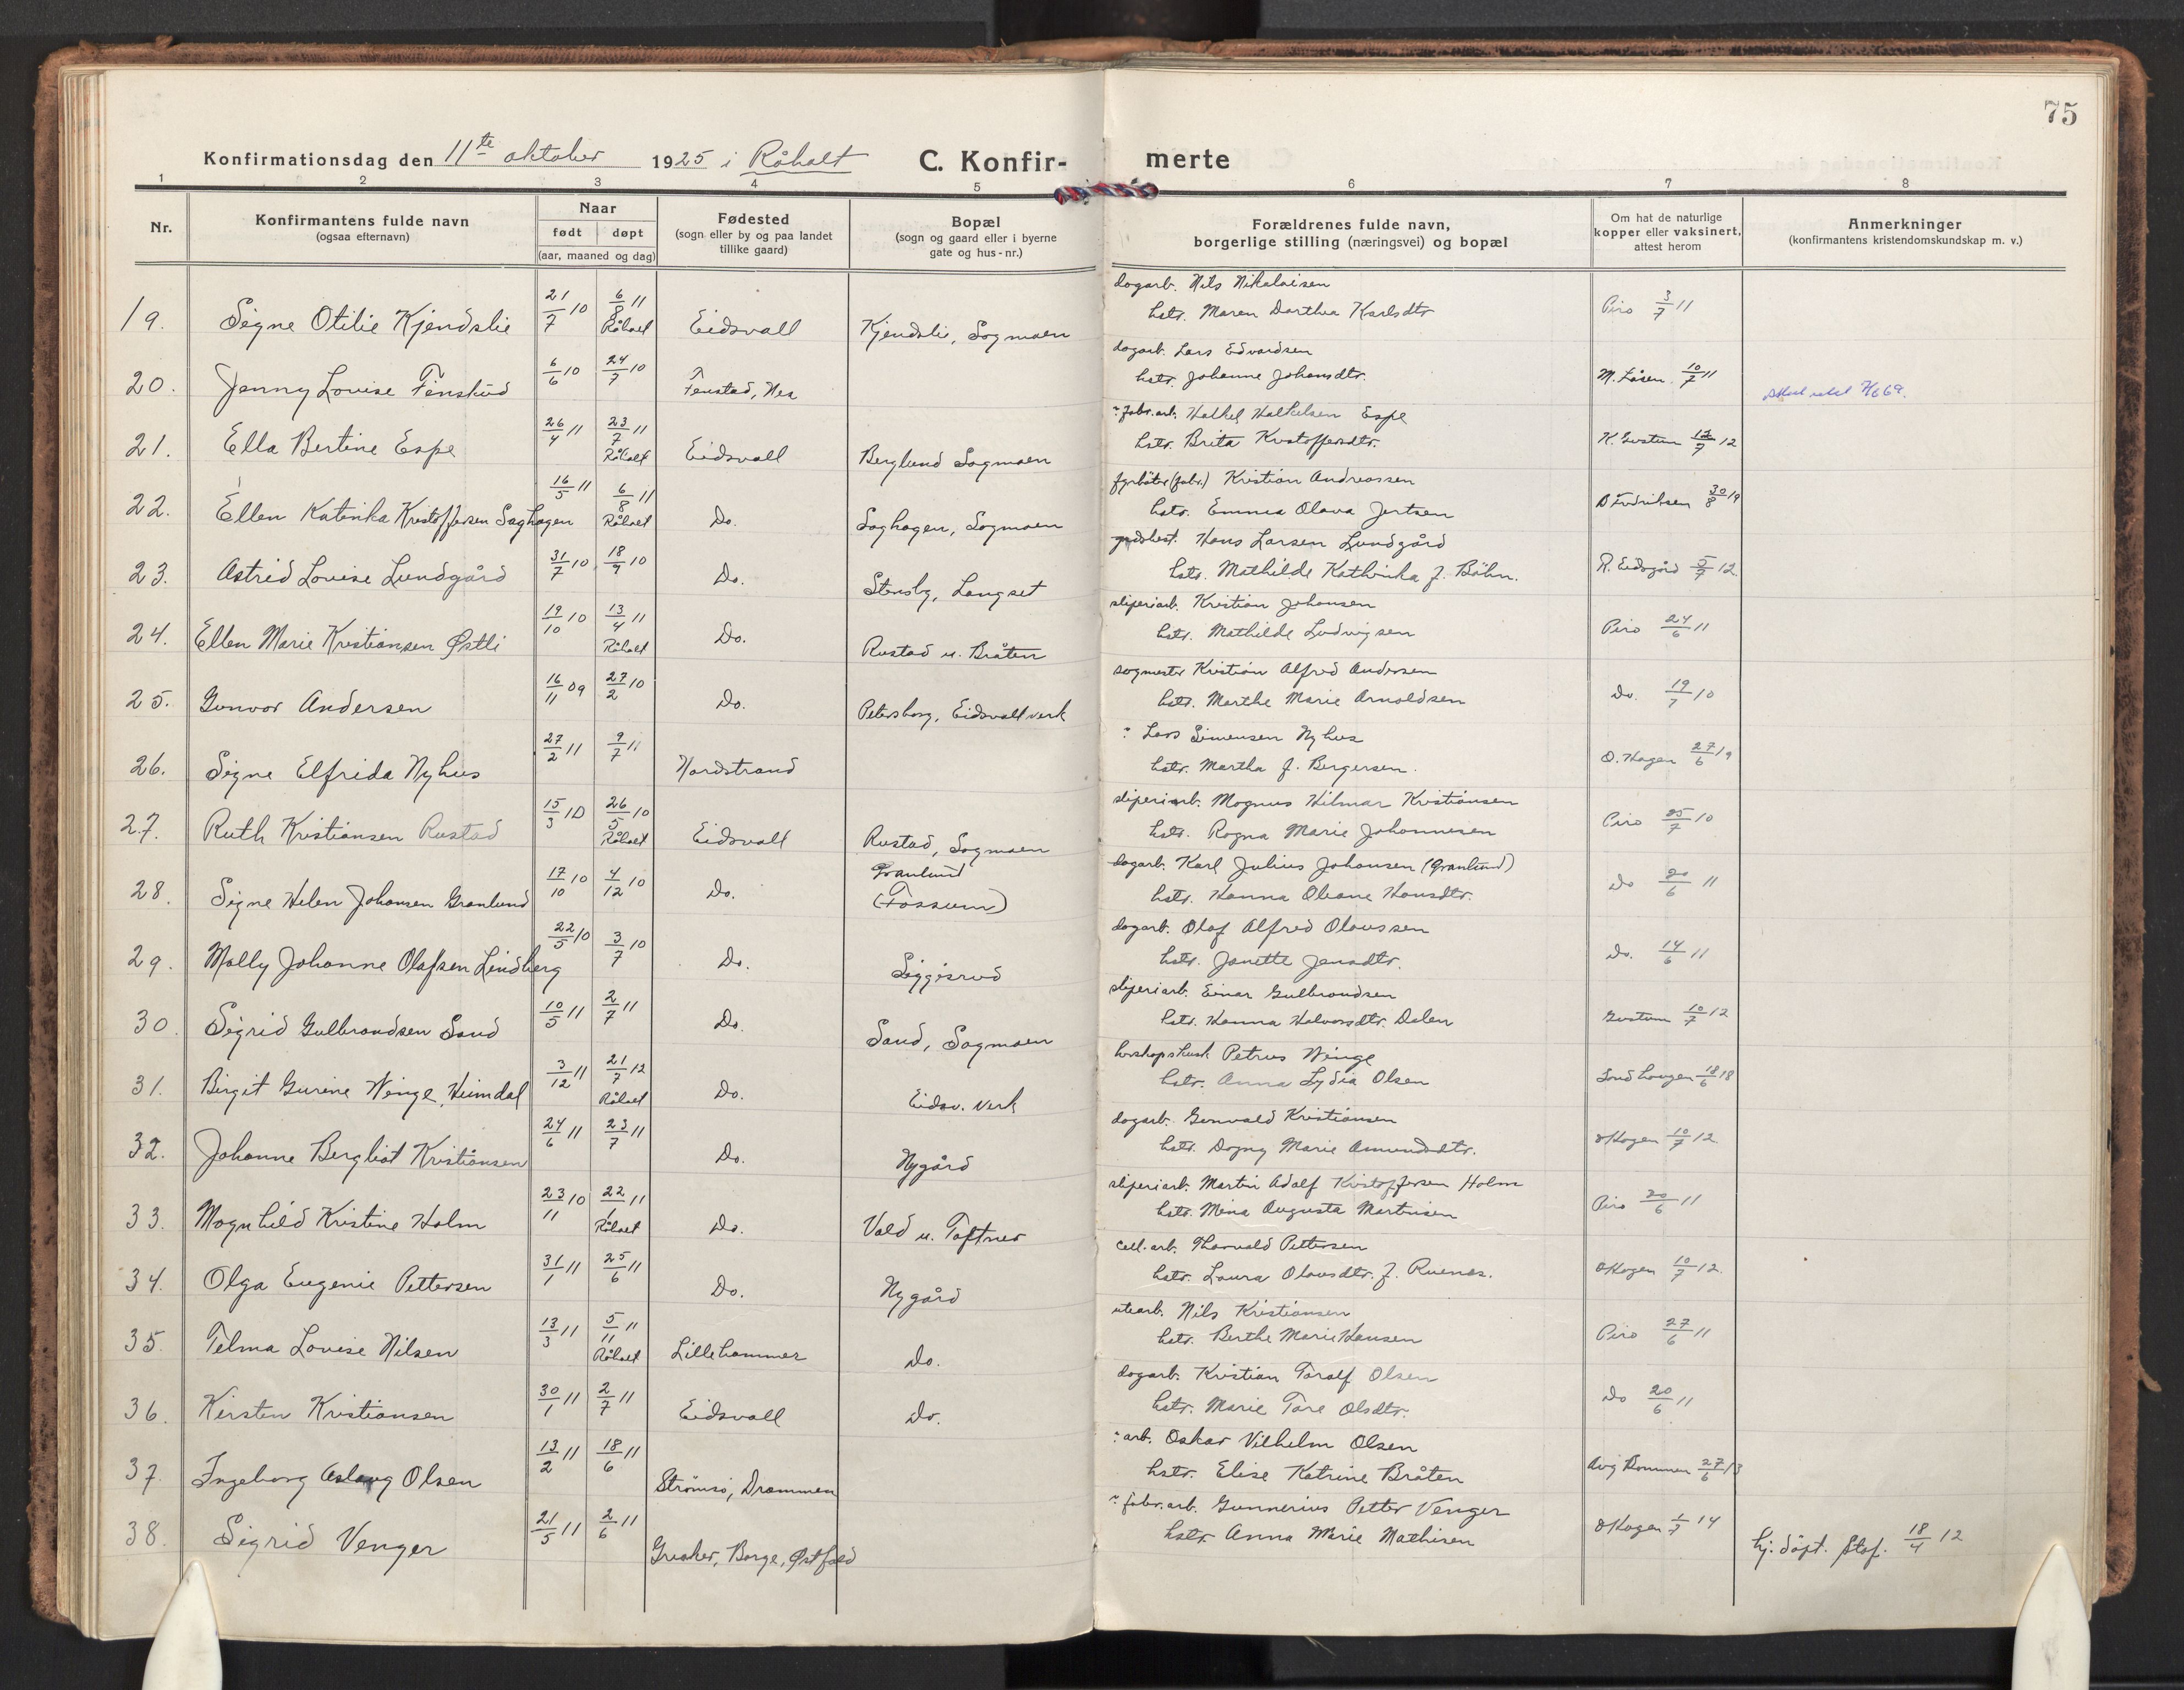 75
Konfirmationsdag den 11te oktober 1925 i Råholt C. Konfir- merte
1 2 3 4 5 6 7 8
Nr.
Konfirmantens fulde navn
(ogsaa efternavn)
Naar
født døpt
(aar, maaned og dag)
Fødested
(sogn eller by og paa landet
tillike gaard)
Bopæl
(sogn og gaard eller i byerne
gate og hus-nr.)
Forældrenes fulde navn,
borgerlige stilling (næringsvei) og bopæl
Om hat de naturlige
kopper eller vaksinert,
attest herom
Anmerkninger
(konfirmantens kristendomskundskap m. v.)
19. Signe Otilie Kjendslie 21/7 10 6/8 11 Råholt Eidsvall Kjendslie, Sagmoen dagarb. Nils Nikolaisen
hstr. Maren Dorthea Karlsdtr Piro 3/7 11
20. Jenny Lovise Finstad 6/6 10 24/7 10 Fenstad, Nes dagarb. Lars Edvardsen
hstr. Johanne Johansdtr. M. Låsen 10/7 11
21. Ella Bertine Espe 26/4 11 23/7 11 Råholt Eidsvall Berglund Sagmoen fabr.arb. Halkel Halkelsen Espe
hstr. Brita Kristoffersdtr. K. Gustum 12/7 12
22. Ellen Katinka Kristoffersen Saghagen 16/5 11 6/8 11 Råholt Do. Saghagen, Sagmoen fyrbøter (fabr.) Kristian Andreassen
hstr. Emma Olava Jertsen D Fredriksen 30/8 19
23. Astrid Lovise Lundgård 31/7 10 18/9 10 Do. Stensby, Langset gårdbest. Hans Larsen Lundgård
hstr. Mathilde Kathinka f. Böhn. R. Eidsgård 5/7 12.
24. Ellen Marie Kristiansen Østli 19/10 10 13/4 11 Råholt Do. Rustad u. Bråten sliperiarb. Kristian Johansen
hstr. Mathilde Ludvigsen Piro 24/6 11
25. Gunvor Andersen 16/11 09 27/2 10 Do. Petersborg, Eidsvallverk sagmester Kristian Alfred Andersen
hstr. Marthe Marie Arnoldsen Do. 19/7 10
26. Signe Elfrida Nyhus 27/2 11 9/7 11 Nordstrand Lars Simensen Nyhus
hstr. Martha f. Bergersen. O. Hagen 27/6 19
27. Ruth Kristiansen Rustad 15/3 10 26/5 10 Råholt Eidsvall Rustad, Sagmoen sliperiarb. Magnus Hilmar Kristiansen
hstr. Ragna Marie Johannesen Piro 25/7 10
28. Signe Helen Johansen Granlund 17/10 10 4/12 10 Do. Granlund
(Fossum) dagarb. Karl Julius Johansen (Granlund)
hstr. Hanna Oleane Hansdtr. Do 20/6 11
29. Molly Johanne Olafsen Lindberg 22/5 10 3/7 10 Do. Liggisrud dagarb. Olaf Alfred Olaussen
hstr. Janette Jensdtr. Do. 14/6 11
30. Sigrid Gulbrandsen Sand 10/5 11 2/7 11 Do. Sand, Sagmoen sliperiarb. Einar Gulbrandsen
hstr. Hanna Halvorsdtr. Dalen Gustum 10/7 12
31. Birgit Gurine Winge, Heimdal 3/12 11 21/7 12 Råholt Do. Eidsv. verk Petrus Winge
hstr. Anna Lydia Olsen 18/6 18
32. Johanne Bergliot Kristiansen 24/6 11 23/7 11 Do. Nygård dagarb. Gunvald Kristiansen
hstr. Dagny Marie Amundsdtr. O Hagen 10/7 12.
33. Magnhild Kristine Holm 23/11 10 22/1 11 Råholt Do. Vald u. Toftner sliperiarb. Martin Adolf Kristoffersen Holm
hstr. Mina Augusta Martinsen Piro 20/6 11
34. Olga Eugenie Pettersen 31/1 11 25/6 11 Do. Nygård cell.arb. Thorvald Pettersen
hstr. Laura Olausdtr. f. Ruenes. O Hagen 10/7 12.
35. Telma Lovise Nilsen 13/3 11 5/11 11 Råholt Lillehammer Do. utearb. Nils Kristiansen
hstr. Berthe Marie Hansen Piro 27/6 11
36. Kirsten Kristiansen 30/1 11 2/7 11 Eidsvall Do. dagarb. Kristian Taralf Olsen
hstr. Marie Tore Olsdtr. Do 20/6 11
37. Ingeborg Aslaug Olsen 13/2 11 18/6 11 Strömsö, Drammen arb. Oskar Vilhelm Olsen
hstr. Elise Katrine Bråten 27/6 13
38. Sigrid Venger 21/5 11 2/6 11 Greaker, Borge, Østfold fabr.arb. Gunnerius Petter Venger
hstr. Anna Marie Mathisen O Hagen 1/7 14 hj. döpt. Staf. 18/4 12